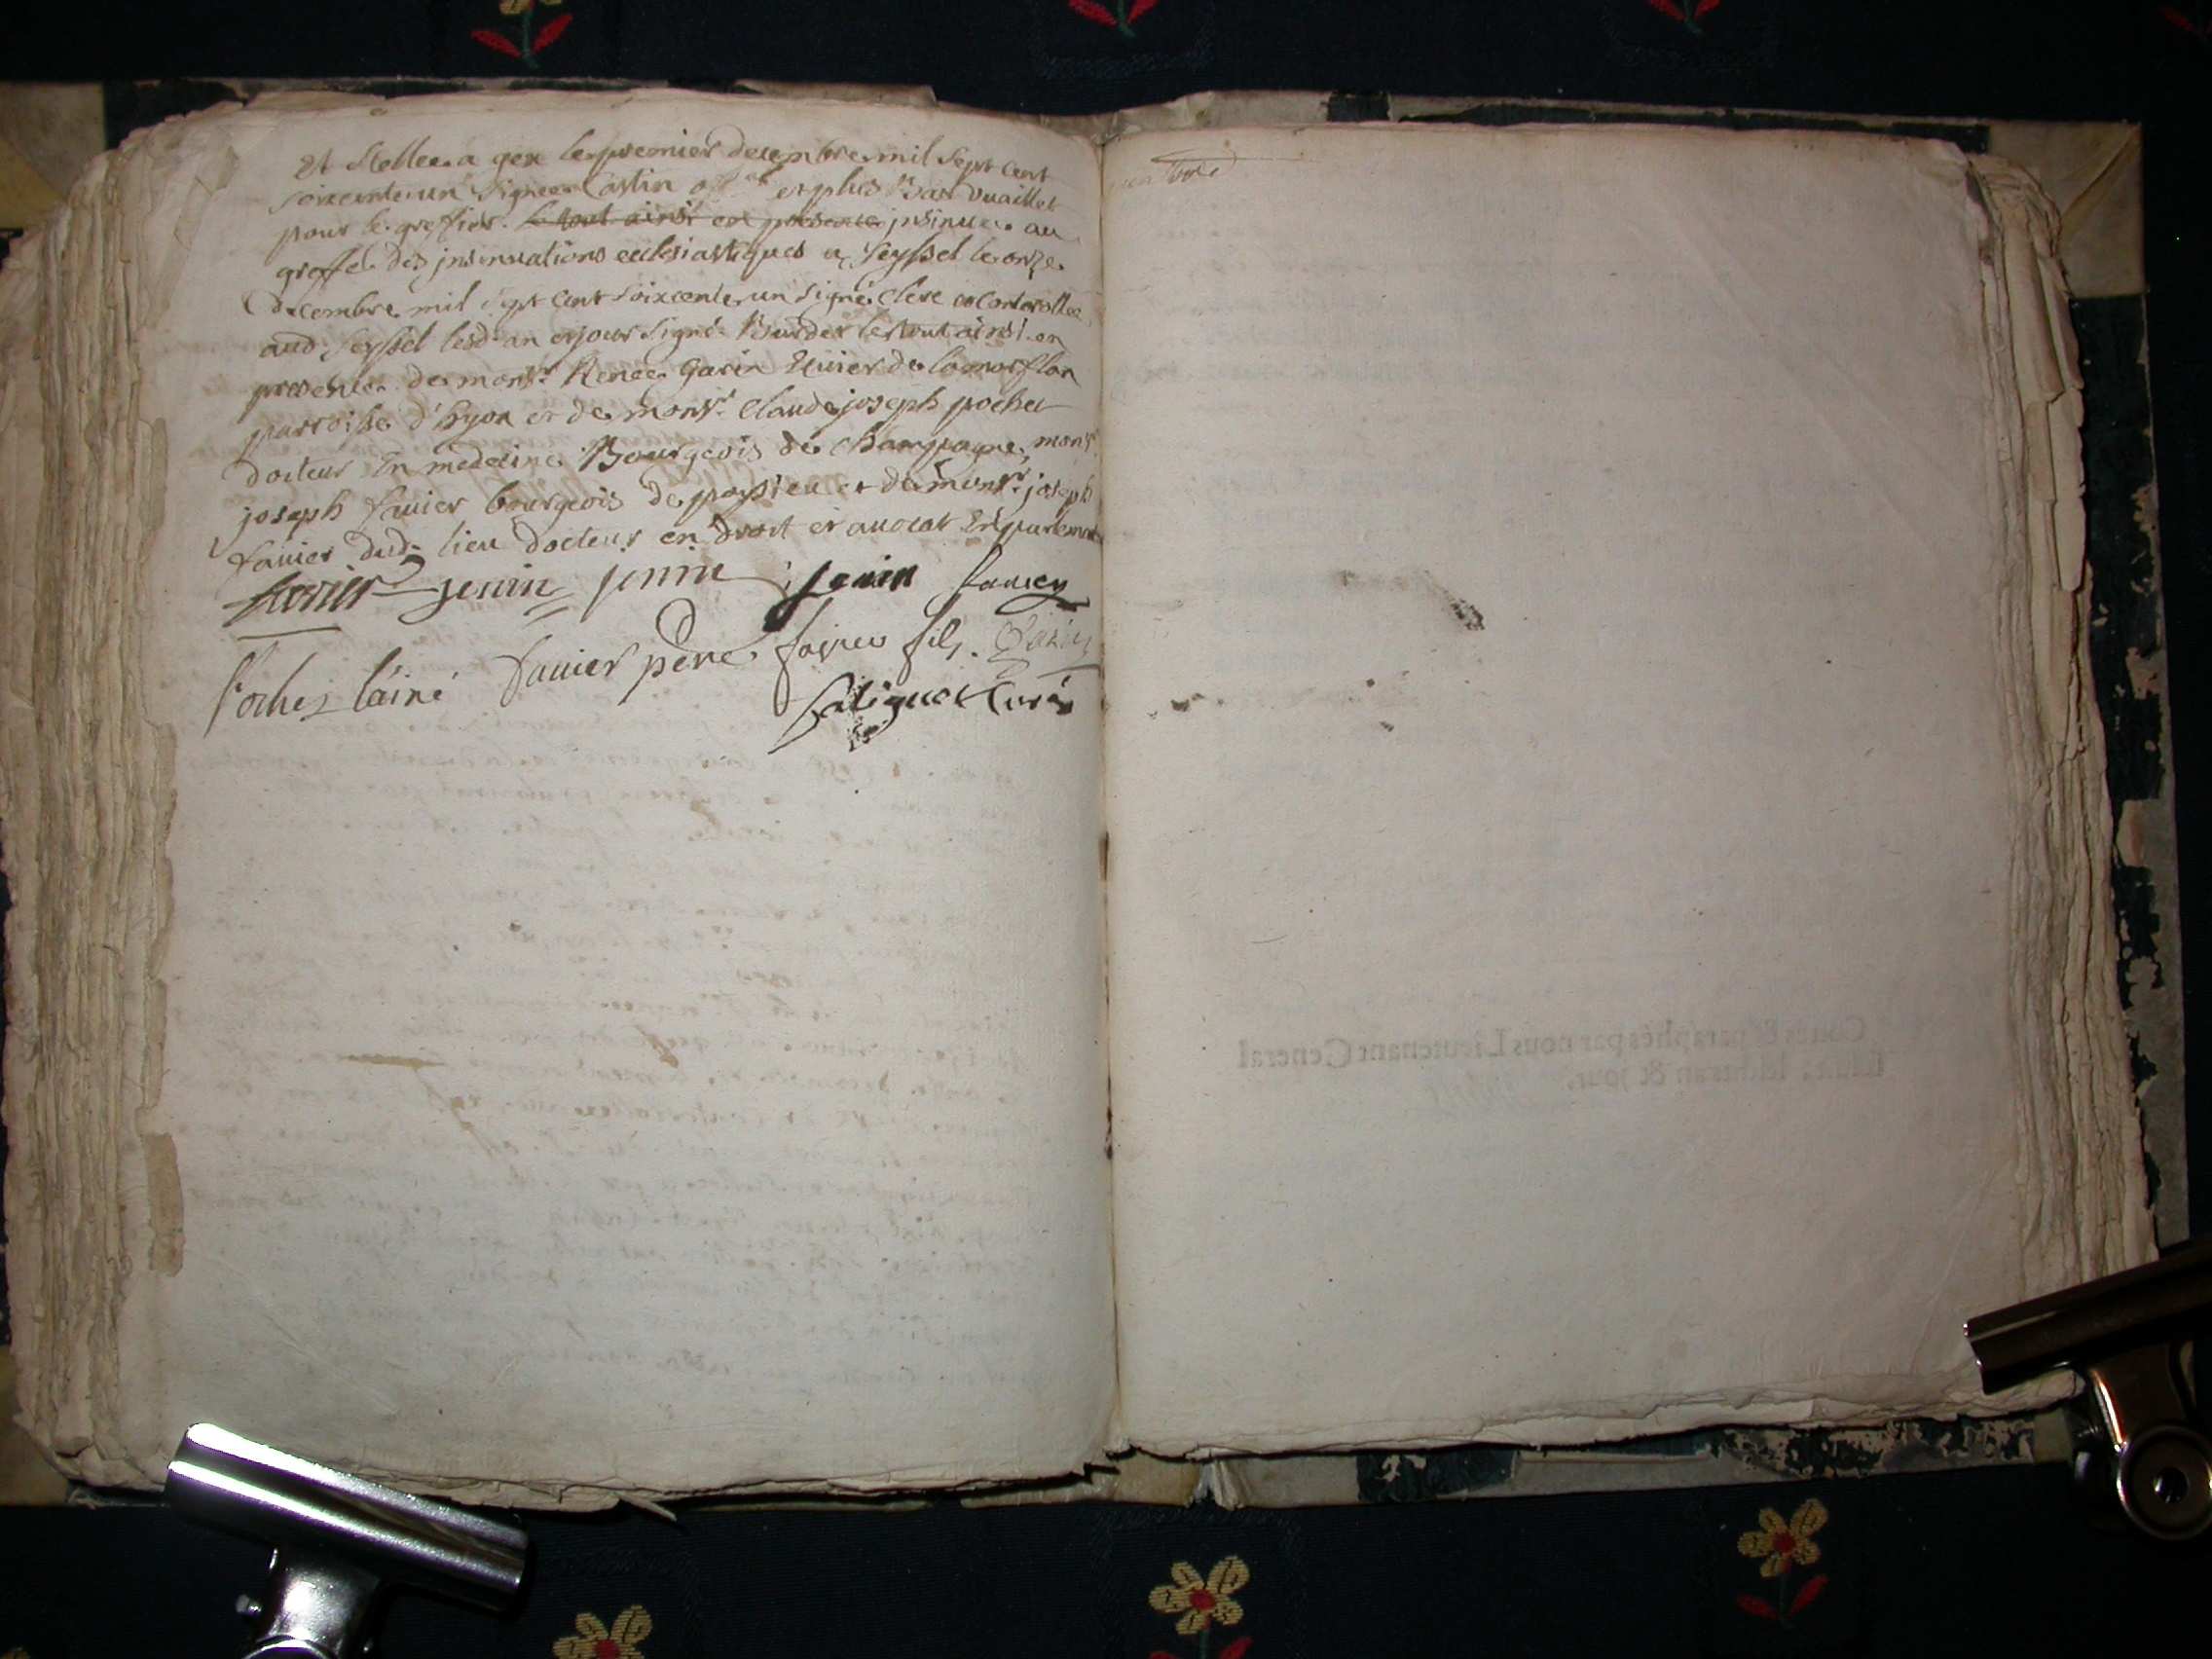 et scellee a gex le premier decembre mil sept cent
soixente un signee Castin off.al et plus bas vuaillet
pour le greffier. le tout ainsi en presence jnsinuee au
greffe des jnsinuations ecclesiastiques a Seyssel le onze
decembre mil sept cent soixente un signé clerc et controllee
aud. Seyssel lesd. an et jour signé Burdet le tout ainsi en
presence de mons.r Renee Garin
paroisse d'hyon et de mons.r Claude joseph pochet
docteur en medecine Bourgeois de Champagne, mons.r
joseph fauier bourgeois de passieu et de mons.r joseph
fauier dud. lieu docteur en droit et auocat en parlement
jenin jenin jenin
Pochet l'ainé fauier pere favier fils. Garin
Salignet Curé
Cottés & paraphés par nous Lieutenant General
lesdits an & jour.